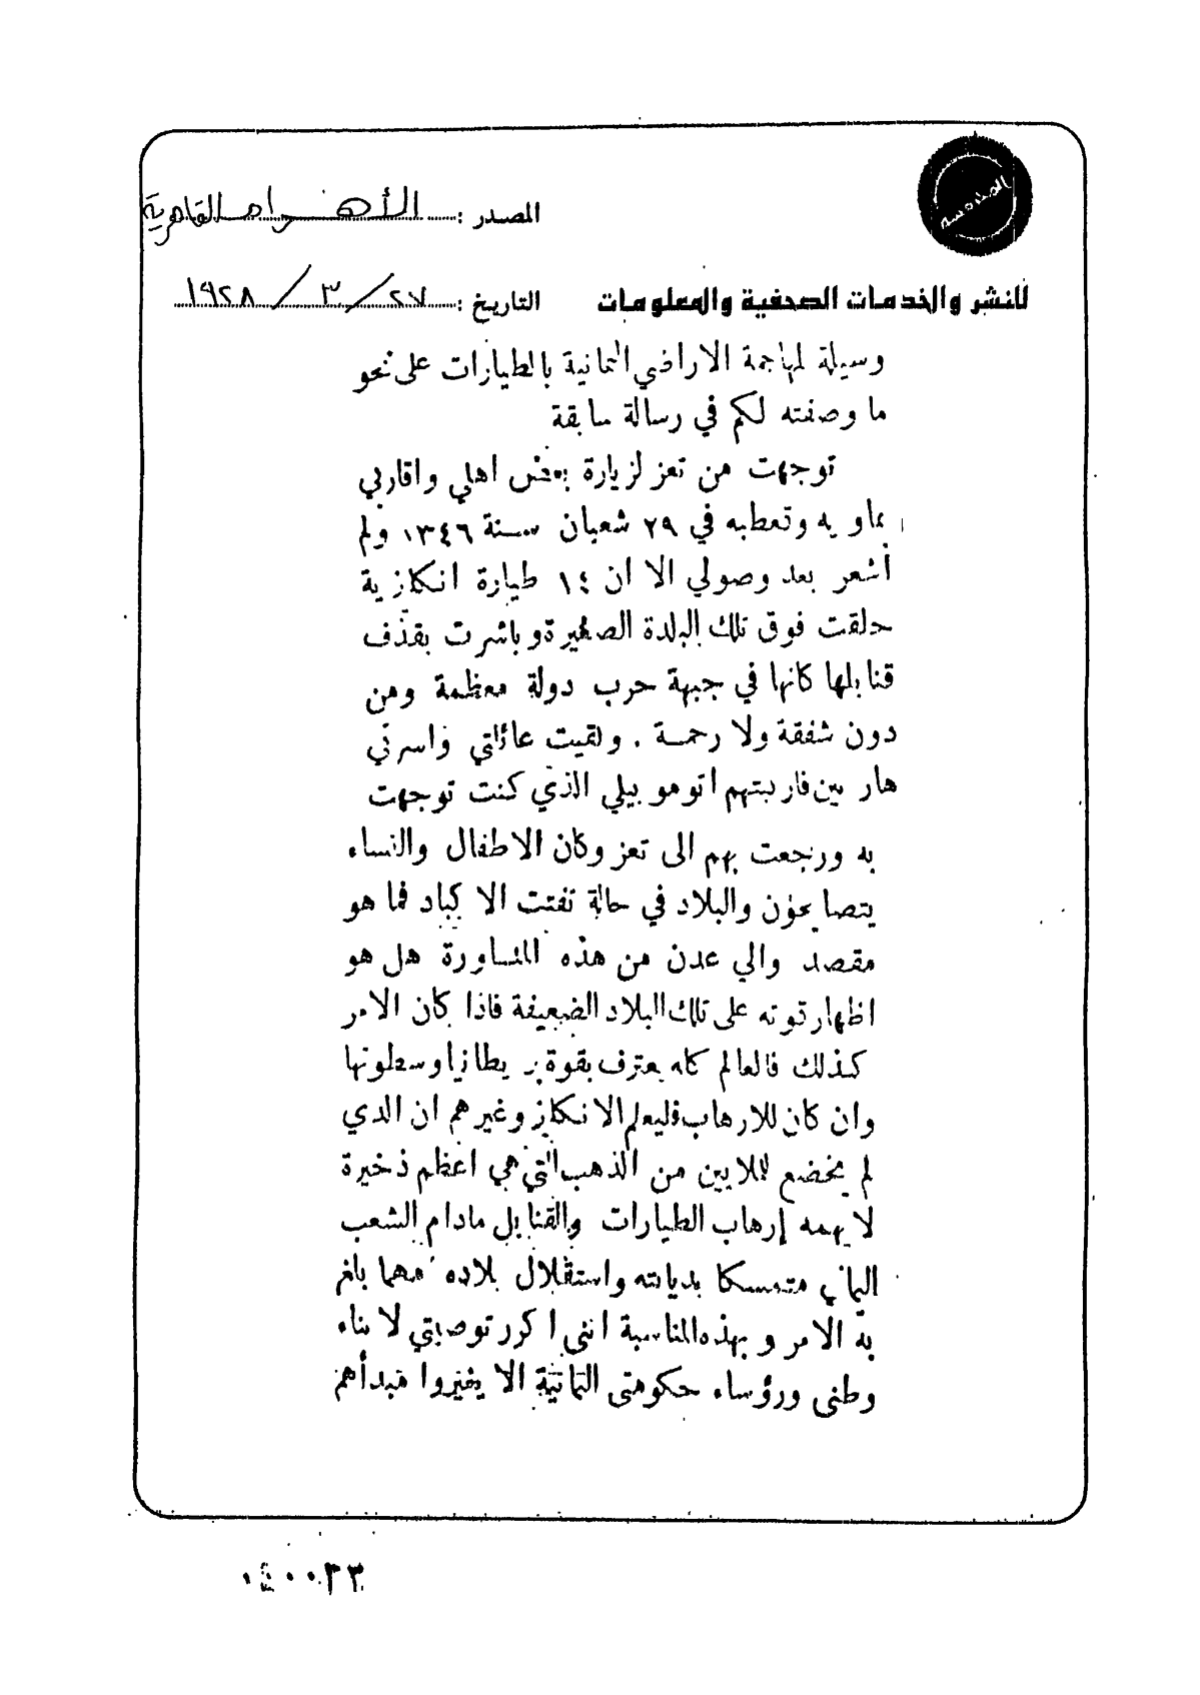 المصدر : الأهرام القاهرية
التاريخ : ٢٧ / ٣ / ١٩٢٨
للنشر والخدمات الصحفية والمعلومات
وسيلة لمهاجمة الاراضي اليمانية بالطيارات على نحو
ما وصفته لكم في رسالة سابقة
توجهت من تعز لزيارة بعض اهلي واقاربي
بماويه وتعطبه في ٢٩ شعبان سنة ١٣٤٦ ولم
أشعر بعد وصولي الا ان ١٤ طيارة انكليزية
حلقت فوق تلك البلدة الصغيرة وباشرت بقذف
قنابلها كانها في جبهة حرب دولة معظمة ومن
دون شفقة ولا رحمة . ولقيت عائلتي واسرتي
هاربين فاربتهم اتوموبيلي الذي كنت توجهت
به ورجعت بهم الى تعز وكان الاطفال والنساء
يتصايحون والبلاد في حالة تفتت الاكباد فما هو
مقصد والي عدن من هذه المناورة هل هو
اظهار قوته على تلك البلاد الضعيفة فاذا كان الامر
كذلك فالعالم كله يعترف بقوة بريطانيا وسطوتها
وان كان للارهاب فليعلم الانكليز وغيرهم ان الذي
لم يخضع لملايين من الذهب التي هي اعظم ذخيرة
لا يهمه إرهاب الطيارات والقنابل مادام الشعب
اليماني متمسكا بديانته واستقلال بلاده مهما بلغ
به الامر وبهذه المناسبة انني اكرر توصيتي لابناء
وطني ورؤساء حكومتي اليمانية الا يغيروا مبدأهم
٠٤٠٠٣٣